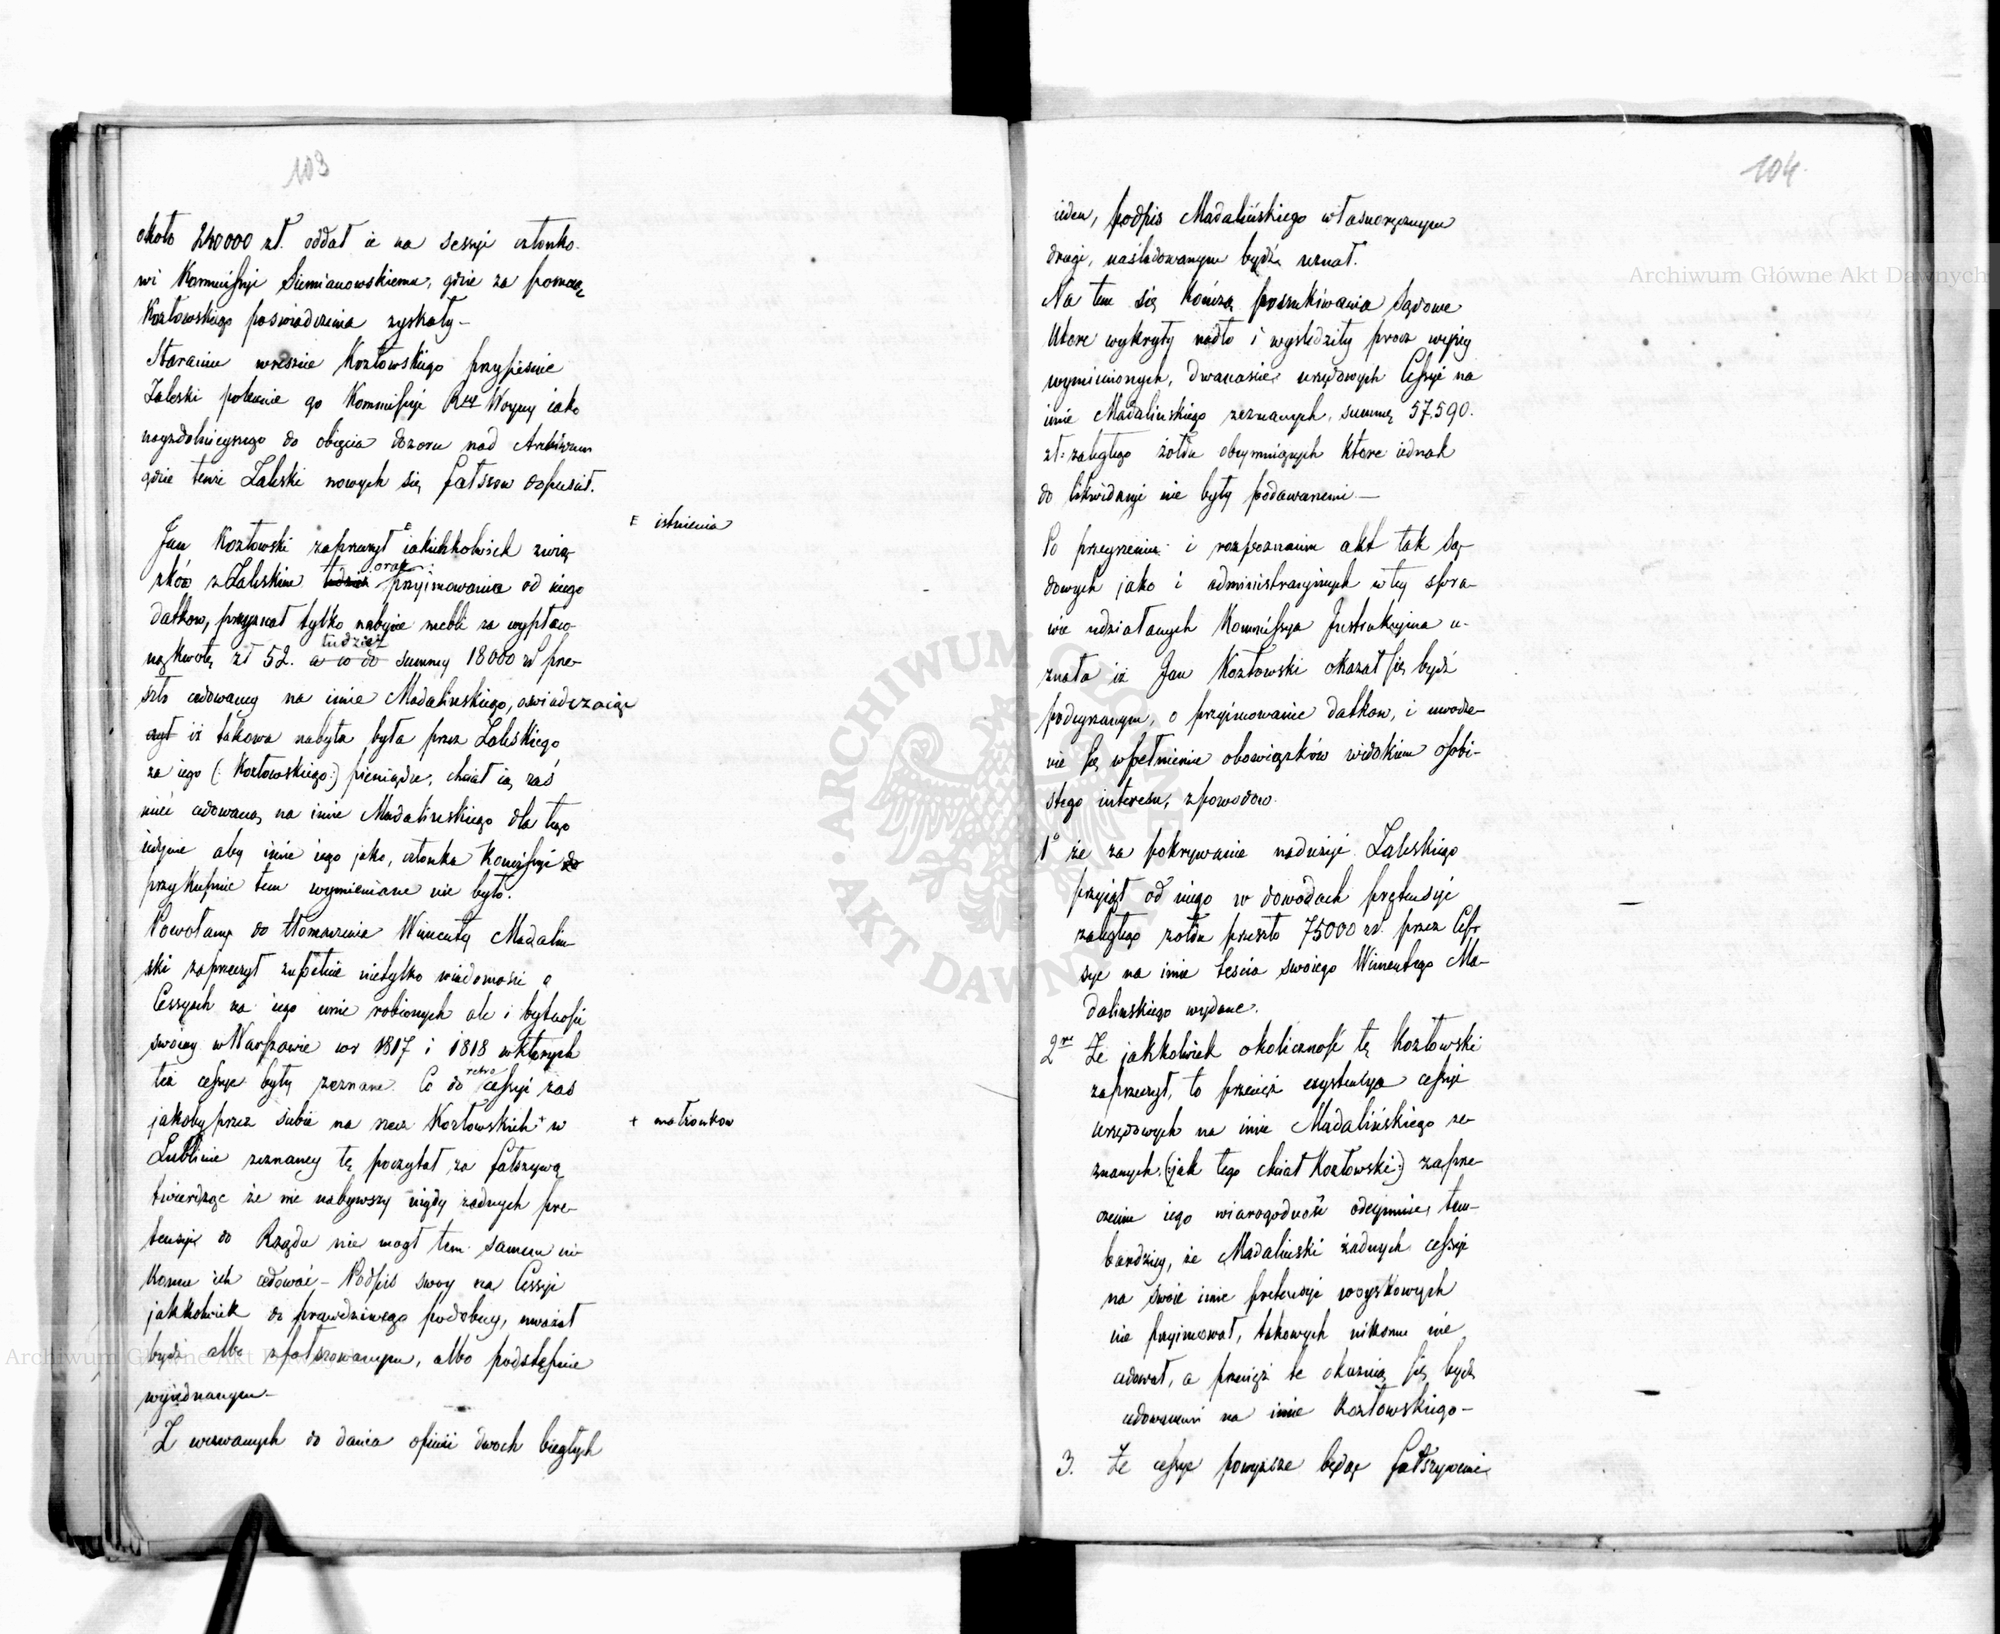 103
około 240000 zł. oddał ie na sessyi członko-
wi Kommissyi Siemianowskiemu, gdzie za pomocą
Kozłowskiego poświadczenia zyskały –
Staraniu wreszcie Kozłowskiego przypisuie
Zaleski polecenie go Kommissyi Rzą Woyny iako
nayzdolnieyszego do obięcia dozoru nad Archiwum
gdzie tenże Zaleski nowych się fałszow dopuścił.
= istnienia
Jan Kozłowski zaprzeczył = iakichkolwiek związ-
zków z Zaleskim tudzież oraz przyimowania od niego
datkow, przyznał tylko nabycie mebli za wypłaco-
ną kwotę zł 52. a co do tudzież summy 18000 zł prze-
szło cedowaney na imie Madalińskiego, oswiadczaiąc
iż takowa nabyta była przez Zaleskiego
za iego (: Kozłowskiego :) pieniądze, chciał ią zaś
mieć cedowaną na imie Madalinskiego dla tego
iedynie aby imie iego jako członka Komissyi do
przy kupnie tem wymieniane nie było.
Powołany do tłomaczenia Wincenty Madaliń-
ski zaprzeczył zupełnie nietylko wiadomości o
Cessyach na iego imie robionych ale i bytności
swoiey w Warszawie w r 1817 i 1818 w których
też cessye były zeznane. Co do retro cessyi zaś
jakoby przez siebie na rzecz Kozłowskich + w
+ małżonkow
Lublinie zeznaney tę poczytał za fałszywą
twierdząc że nie nabywszy nigdy żadnych pre-
tensyi do Rządu nie mogł tem samem ni-
komu ich cedować – Podpis swoy na Cessyi
jakkolwiek do prawdziwego podobny, uważał
bydź albo sfałszowanym, albo podstępnie
wyiednanym –
Z wezwanych do dania opinii dwoch biegłych
104.
ieden, podpis Madalińskiego własnoręcznym
drugi, naśladowanym bydź uznał.
Na tem się kończą poszukiwania Sądowe
które wykryły nadto i wyśledziły procz wyżey
wymienionych, dwanaście urzędowych Cessyi na
imie Madalinskiego zeznanych, summę 57.590.
zł: zaległego żołdu obeymuiących które iednak
do likwidacyi nie były podawanemi –
Po przeyrzeniu i rozpoznaniu akt tak Są-
dowych jako i administracyjnych w tey spra-
wie udziałanych Kommissya Instrukcyina u-
znała iż Jan Kozłowski okazał się bydź
podeyrzanym, o przyimowanie datkow, i uwodze-
nie się w pełnieniu obowiązków widokiem osobi-
stego interesu, z powodow.
1º że za pokrywanie nadużyć Zaleskiego
przyiął od niego w dowodach pretensyi
zaległego żołdu przeszło 75000 zł. przez Ces-
sye na imie teścia swoiego Wincentego Ma-
dalinskiego wydane.
2re Że jakkolwiek okoliczność tę Kozłowski
zaprzeczył, to przecież exystencya cessyi
urzędowych na imie Madalińskiego ze-
znanych (:jak tego chciał Kozłowski:) zaprze-
czeniu iego wiarogodność odeymuie, tem-
bardziey, że Madalinski żadnych cessyi
na swoie imie pretensyi woyskowych
nie przyimował, takowych nikomu nie
cedował, a przecież te okazuią się bydź
cedowanemi na imie Kozłowskiego –
3. Że cessye powyższe będąc fałszywemi
Archiwum Główne Akt Dawnych
Archiwum Główne Akt Dawnych
ARCHIWUM GŁÓWNE AKT DAWNYCH